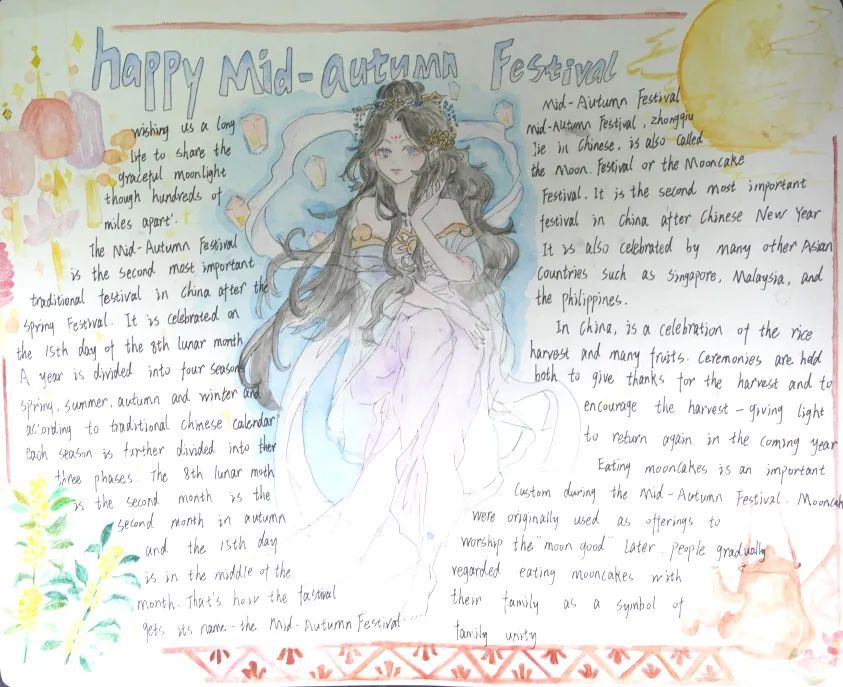 happy Mid-autumn Festival
wishing us a long
life to share the
graceful moonlight
though hundreds of
miles apart'.
The Mid-Autumn Festival
is the second most important
traditional festival in China after the
Spring Festival. It is celebrated on
the 15th day of the 8th lunar month
A year is divided into four seasons
spring, summer, autumn and winter and
according to traditional chinese calendar
each season is further divided into ther
three phases. The 8th lunar moth
is the second month is the
second month in autumn
and the 15th day
is in the middle of the
month. That's how the fastival
gets its name-the Mid-Autumn Festival
Mid-Autumn Festival
mid-Autumn Festival, zhongqiu
Jie in Chinese, is also called
the Moon Festival or the Mooncake
Festival. It is the second most important
festival in China after Chinese New Year
It is also celebrated by many other Asian
Countries such as Singapore, Malaysia, and
the philippines.
In China, is a celebration of the rice
harvest and many fruits. Ceremonies are held
both to give thanks for the harvest and to
encourage the harvest-giving light
to return again in the coming year
Eating mooncakes is an important
Custom during the Mid-Autumn Festival. Mooncak
were originally used as offerings to
worship the "moon good" Later, people gradually
regarded eating mooncakes with
their family as a symbol of
family unity